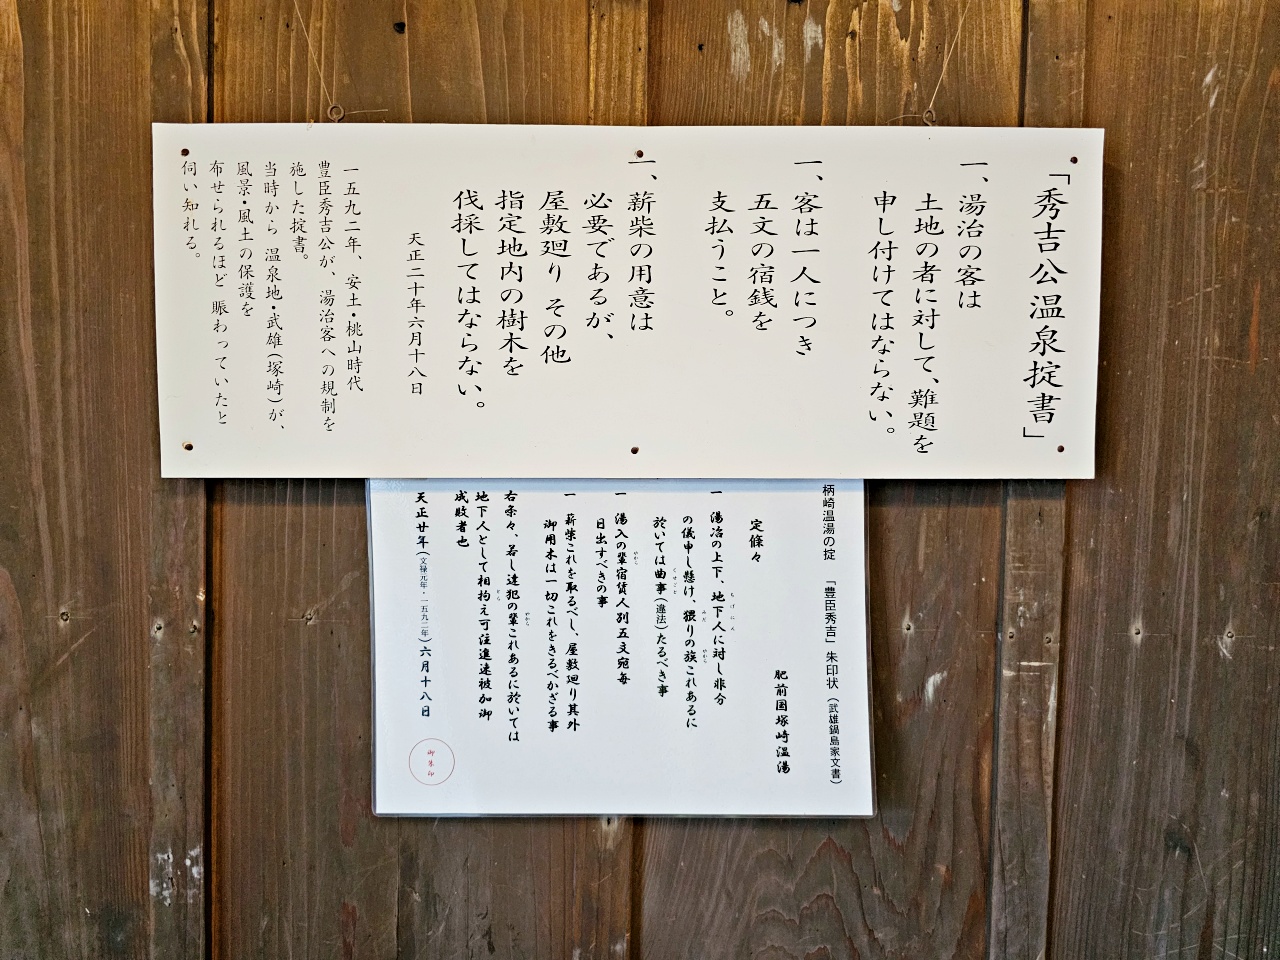 「秀吉公温泉掟書」
一、湯治の客は
土地の者に対して、難題を
申し付けてはならない。
一、客は一人につき
五文の宿銭を
支払うこと。
一、薪柴の用意は
必要であるが、
屋敷廻り その他
指定地内の樹木を
伐採してはならない。
天正二十年六月十八日
一五九二年、安土・桃山時代
豊臣秀吉公が、湯治客への規制を
施した掟書。
当時から 温泉地・武雄(塚崎)が、
風景・風土の保護を
布せられるほど 賑わっていたと
伺い知れる。
柄崎温湯の掟 「豊臣秀吉」朱印状(武雄鍋島家文書)
肥前国塚崎温湯
定條々
一 湯治の上下、地下人に対し非分
の儀申し懸け、猥りの族これあるに
於いては曲事(違法)たるべき事
一 湯入の輩宿賃人別五文宛毎
日出すべきの事
一 薪柴これを取るべし、屋敷廻り其外
御用木は一切これをきるべかざる事
右条々、若し違犯の輩これあるに於いては
地下人として相拘え可注進速被加御
成敗者也
天正廿年(文禄元年・一五九二年)六月十八日
御朱印